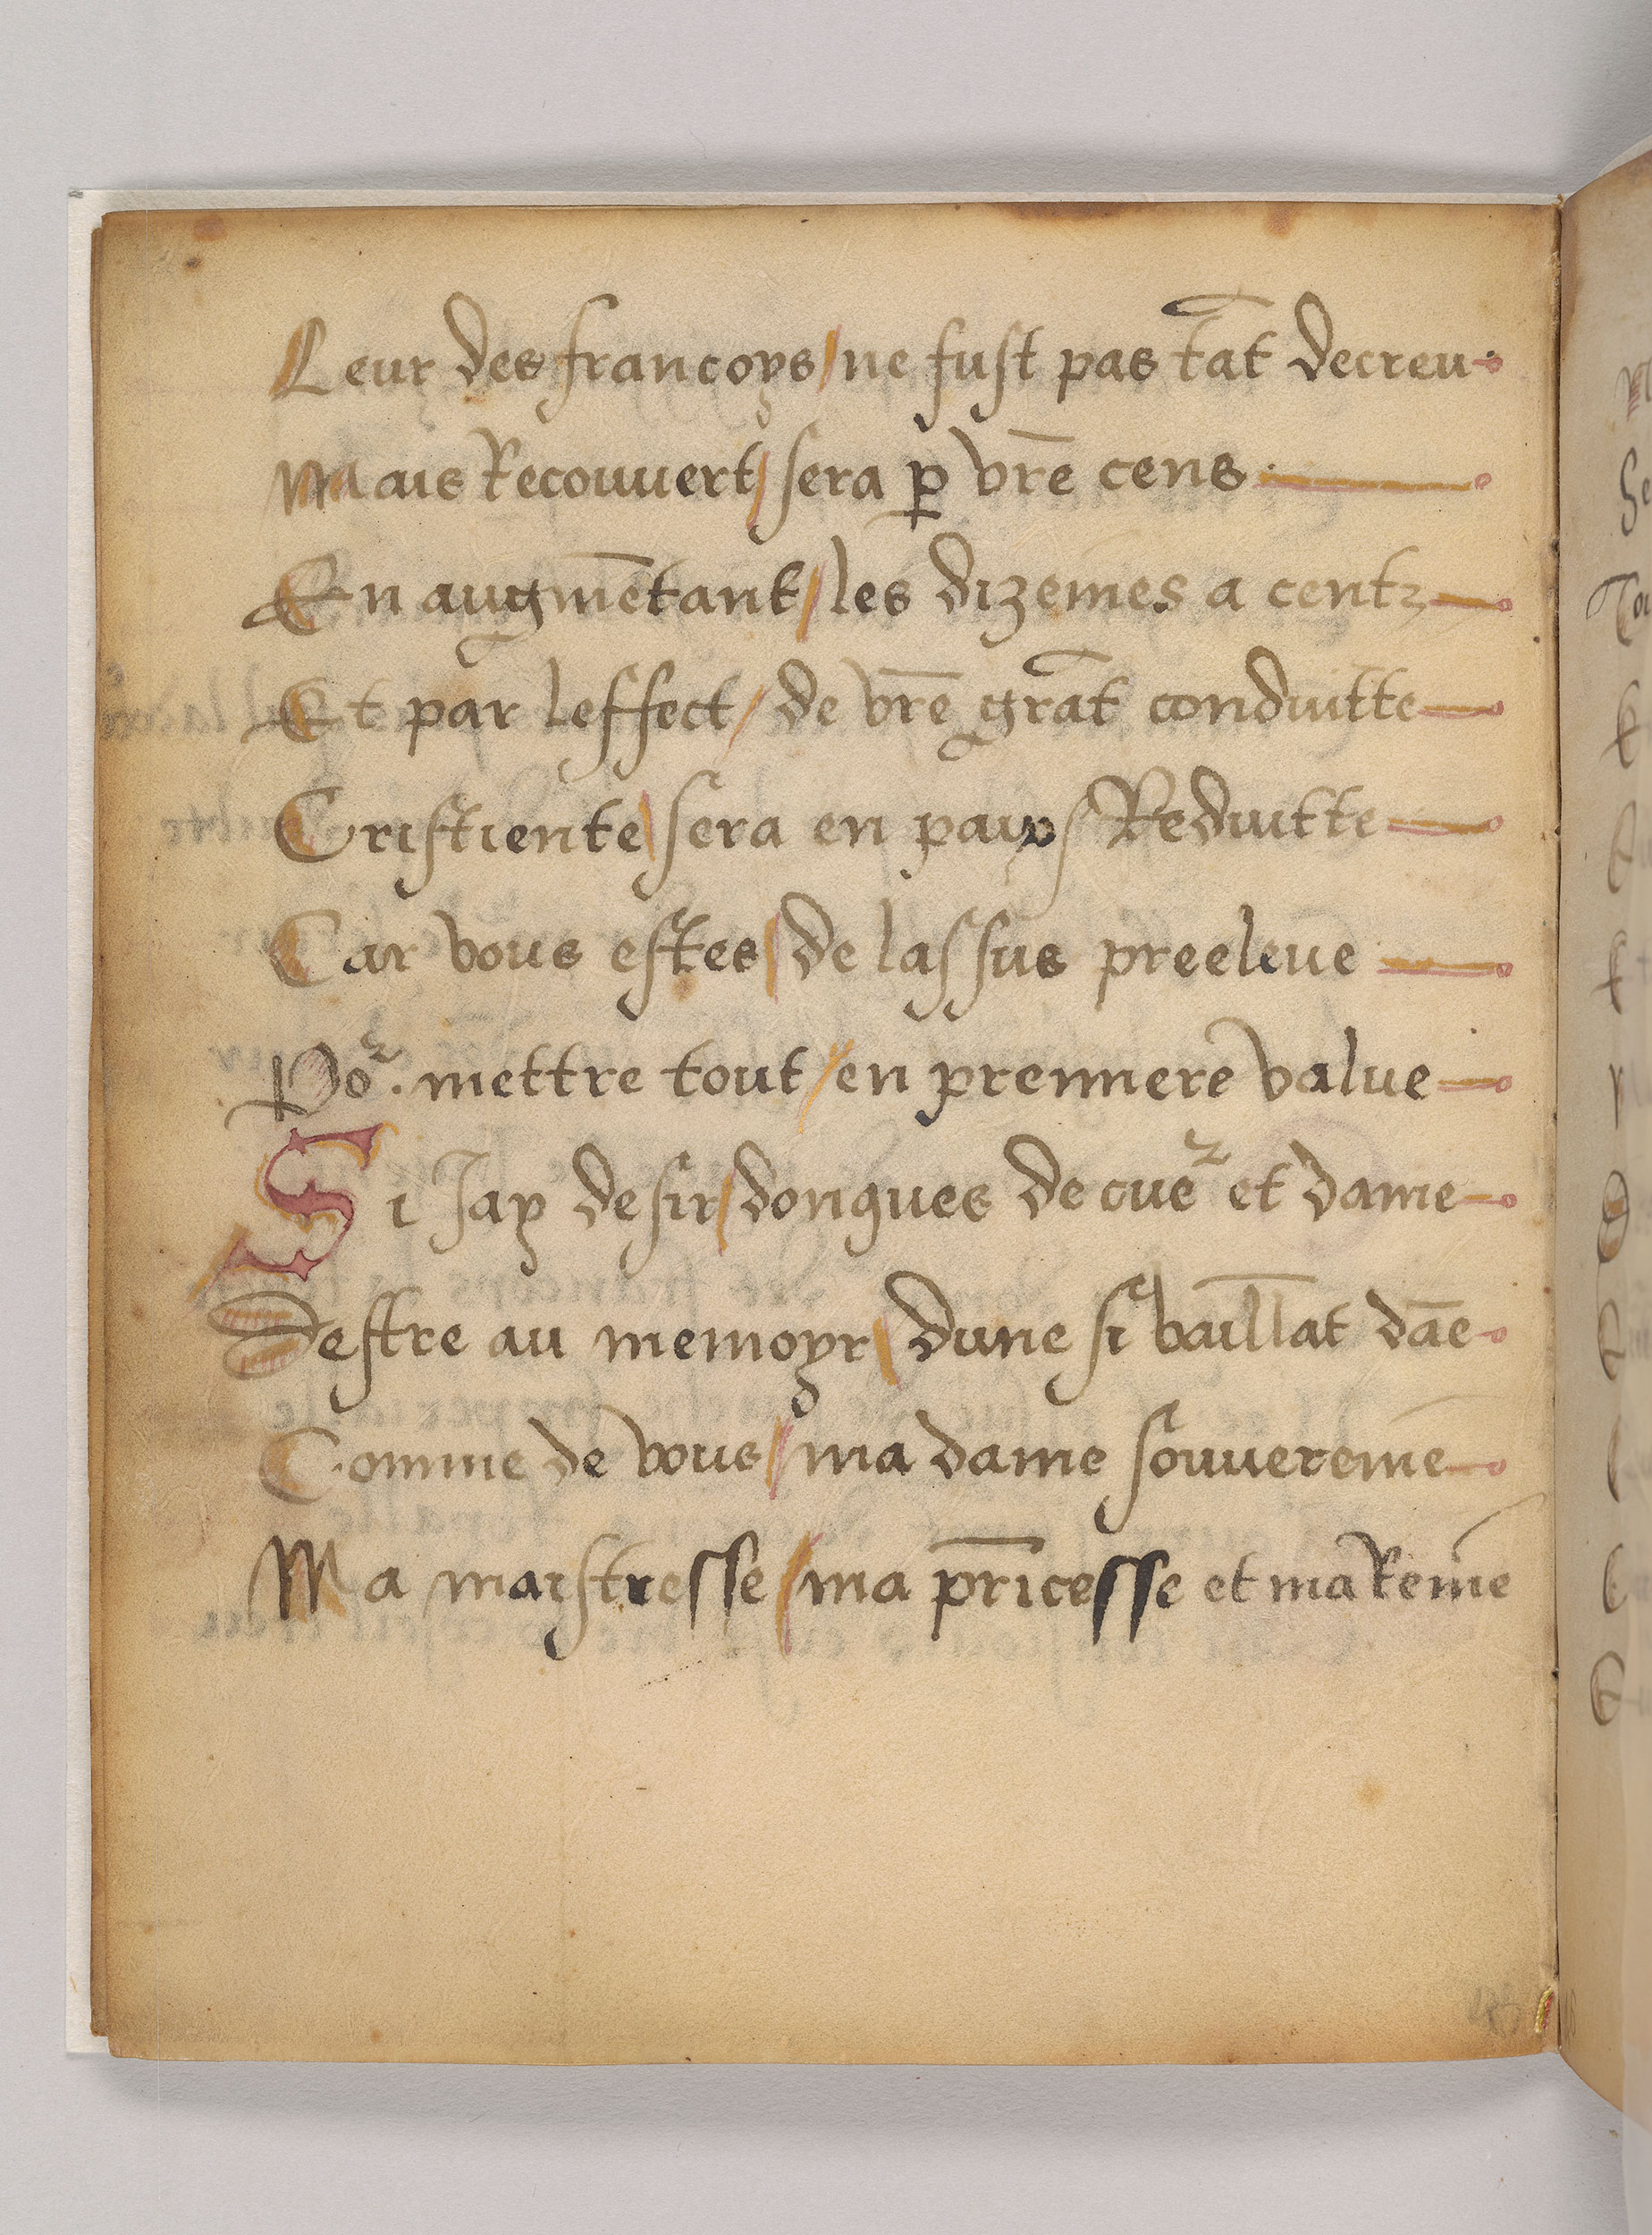 Leur des francoys / ne fust pas tāt decreu
Maais Recouuert / sera ꝑ vr̄e cens
En augmētant / les dizemes a centz
Et par leffect / de vr̄e grāt conduitte
Cristiente / sera en paix Reduitte
Car vous estes / de lassus preeleue
Po᷑. mettre tout / en premiere value
Si Jay desir / donques de cue᷑ et dame
Destre au memoyr / dune si baillāt dāe
Comme de vous / ma dame souuereine
Ma maistresse / ma pr̄icesse et ma Reine